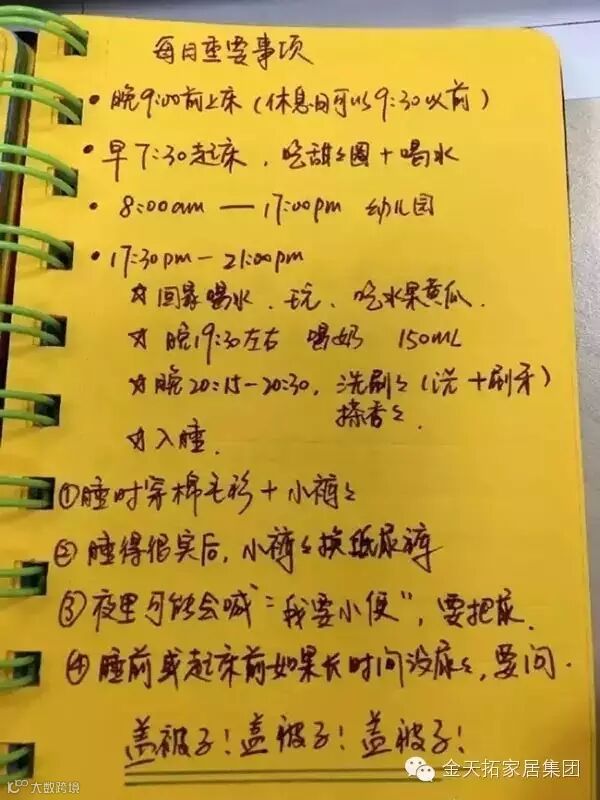 每日重要事项
• 晚9:00前上床（休息日可以9:30以前）
• 早7:30起床，吃甜甜圈+喝水
• 8:00am — 17:00pm 幼儿园
• 17:30pm — 21:00pm
☆ 回家喝水、玩、吃水果黄瓜.
☆ 晚19:30左右 喝奶 150ML
☆ 晚20:15-20:30，洗刷々（洗+刷牙）
搽香々.
☆ 入睡.
①睡时穿棉毛衫+小裤々
②睡得很实后，小裤々换纸尿裤
③夜里可能会喊：“我要小便”，要把尿.
④睡前或起床前如果长时间没尿々，要问.
盖被子！盖被子！盖被子！
金天拓家居集团
大数跨境